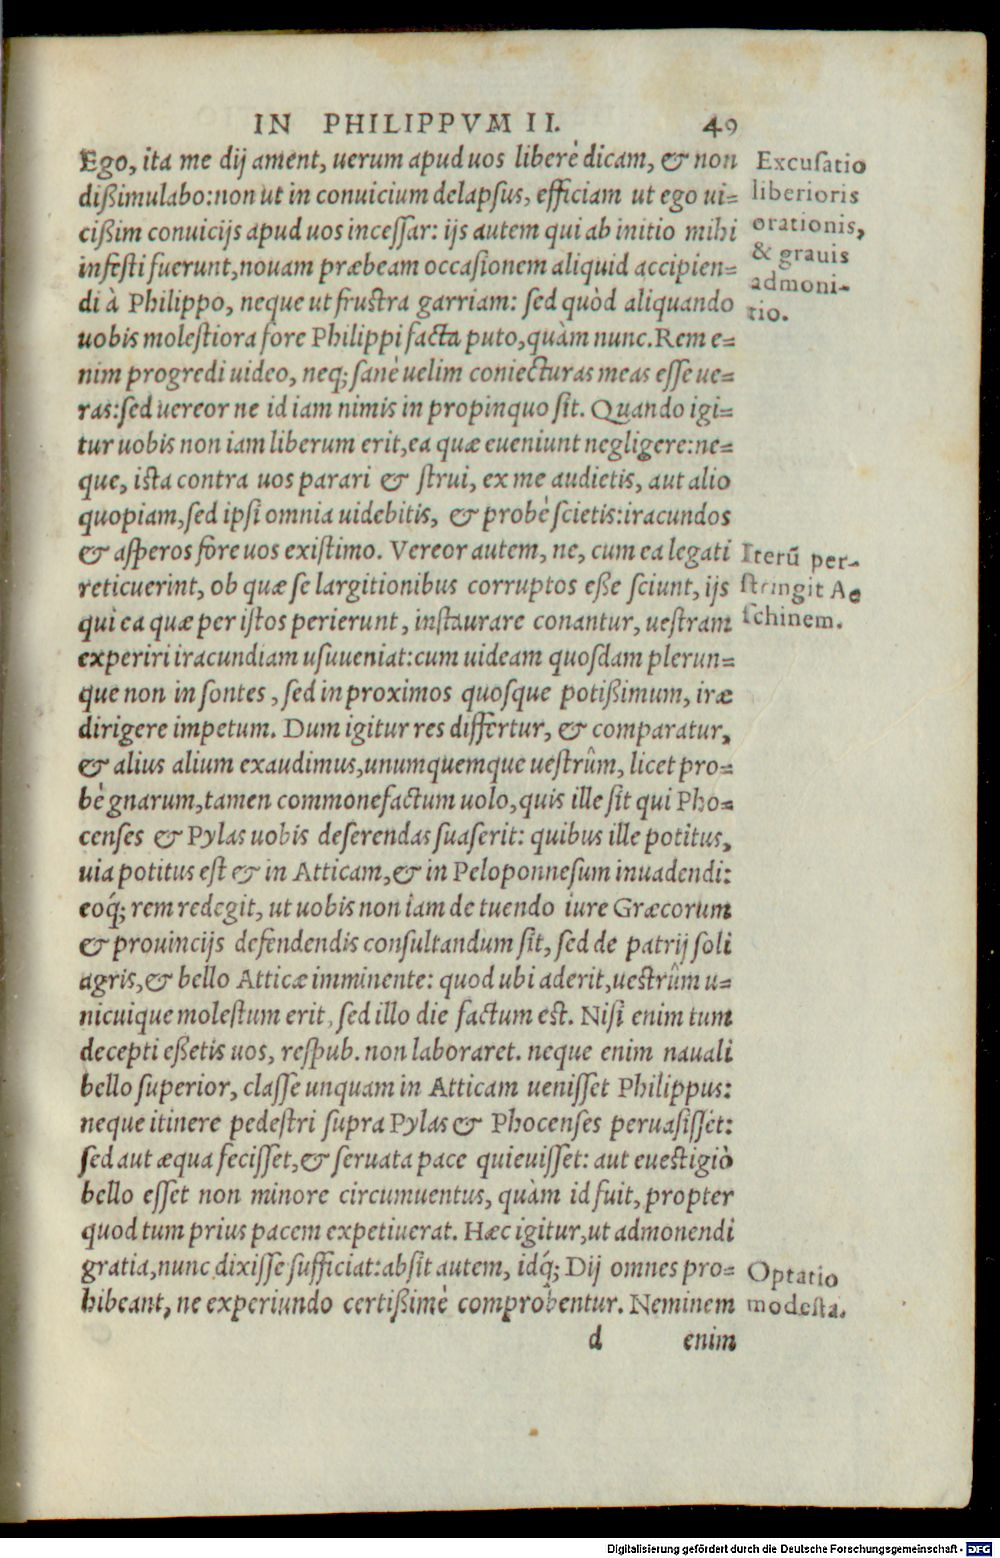 IN PHILIPPVM II. 49
Ego, ita me dij ament, uerum apud uos liberè dicam, & non
dißimulabo: non ut in conuicium delapsus, efficiam ut ego ui=
cißim conuicijs apud uos incessar: ijs autem qui ab initio mihi
infesti fuerunt, nouam præbeam occasionem aliquid accipien=
di à Philippo, neque ut frustra garriam: sed quòd aliquando
uobis molestiora fore Philippi facta puto, quàm nunc. Rem e=
nim progredi uideo, neq; sanè uelim coniecturas meas esse ue=
ras: sed uereor ne id iam nimis in propinquo sit. Quando igi=
tur uobis non iam liberum erit, ea quæ eueniunt negligere: ne=
que, ista contra uos parari & strui, ex me audietis, aut alio
quopiam, sed ipsi omnia uidebitis, & probè scietis: iracundos
& asperos fore uos existimo. Vereor autem, ne, cum ea legati
reticuerint, ob quæ se largitionibus corruptos eße sciunt, ijs
qui ea quæ per istos perierunt, instaurare conantur, uestram
experiri iracundiam usuueniat: cum uideam quosdam plerun=
que non in sontes, sed in proximos quosque potißimum, iræ
dirigere impetum. Dum igitur res differtur, & comparatur,
& alius alium exaudimus, unumquemque uestrûm, licet pro=
bè gnarum, tamen commonefactum uolo, quis ille sit qui Pho=
censes & Pylas uobis deserendas suaserit: quibus ille potitus,
uia potitus est & in Atticam, & in Peloponnesum inuadendi:
eoq́; rem redegit, ut uobis non iam de tuendo iure Græcorum
& prouincijs defendendis consultandum sit, sed de patrij soli
agris, & bello Atticæ imminente: quod ubi aderit, uestrûm u=
nicuique molestum erit, sed illo die factum est. Nisi enim tum
decepti eßetis uos, respub. non laboraret. neque enim nauali
bello superior, classe unquam in Atticam uenisset Philippus:
neque itinere pedestri supra Pylas & Phocenses peruasisset:
sed aut æqua fecisset, & seruata pace quieuisset: aut euestigiò
bello esset non minore circumuentus, quàm id fuit, propter
quod tum prius pacem expetiuerat. Hæc igitur, ut admonendi
gratia, nunc dixisse sufficiat: absit autem, idq́; Dij omnes pro=
hibeant, ne experiundo certißimè comprobentur. Neminem
d enim
Excusatio
liberioris
orationis,
& grauis
admoni-
tio.
Iterũ per-
stringit Ae
schinem.
Optatio
modesta.
Digitalisierung gefördert durch die Deutsche Forschungsgemeinschaft - DFG